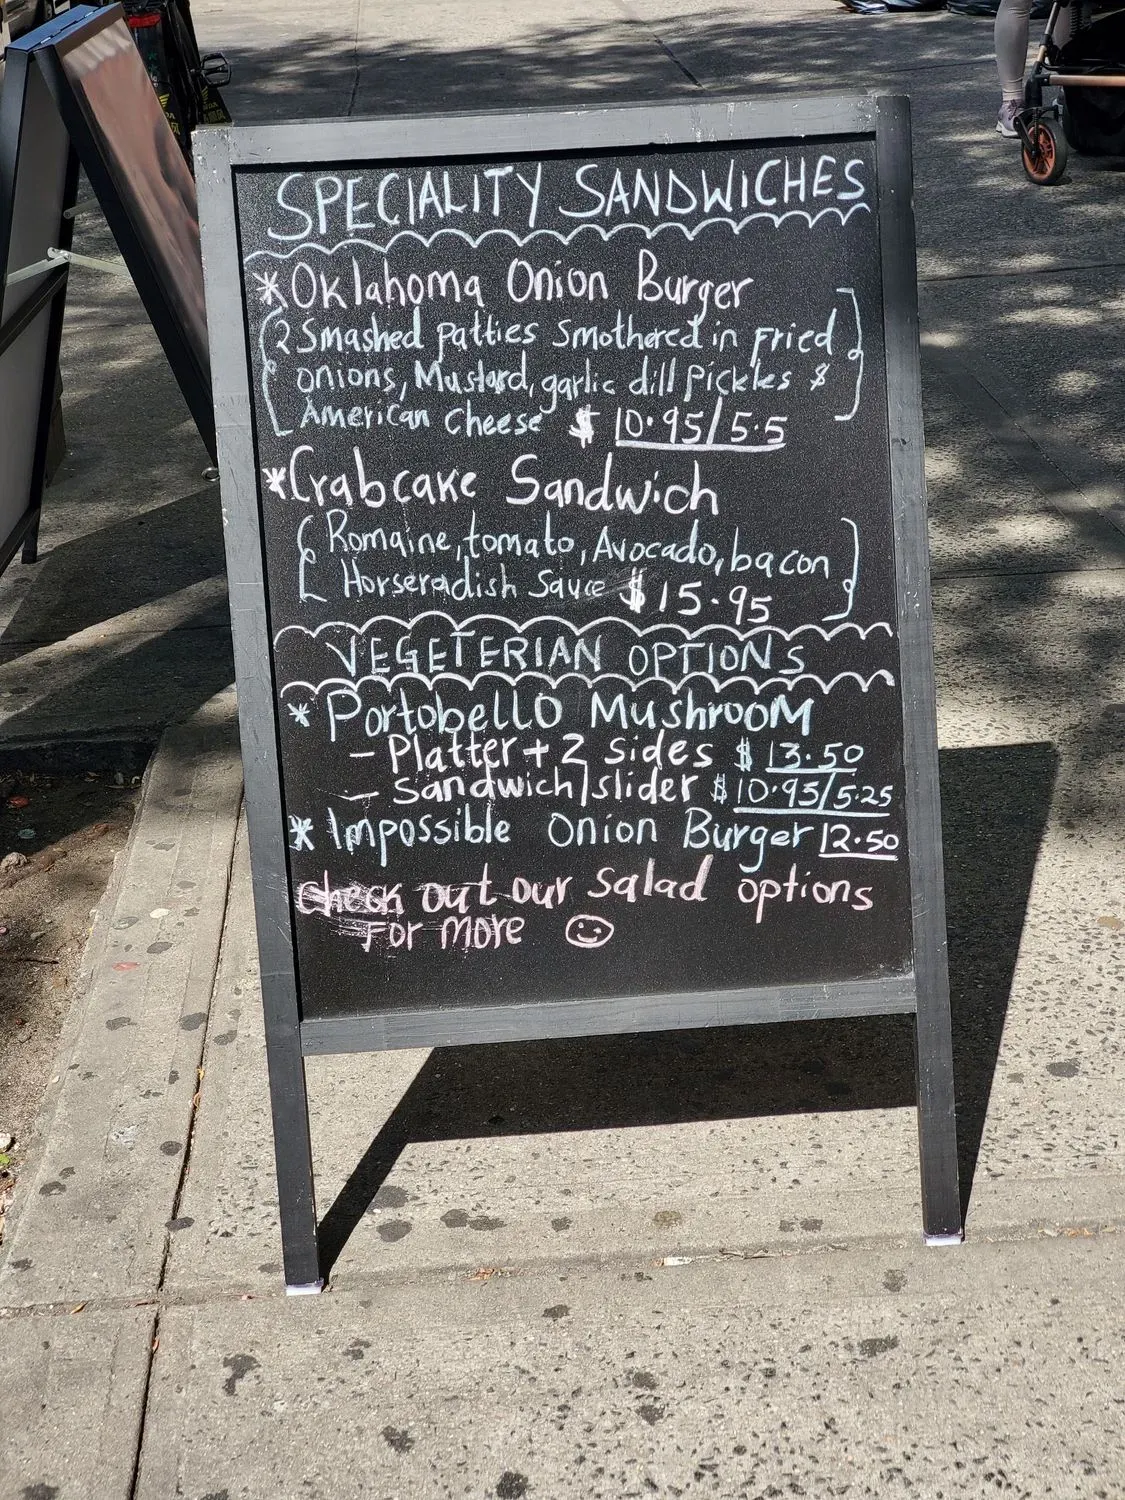 SPECIALITY SANDWICHES
* Oklahoma Onion Burger
2 Smashed patties Smothered in Fried
onions, Mustard, garlic dill Pickles &
American Cheese $ 10.95/5.5
* Crabcake Sandwich
Romaine, tomato, Avocado, bacon
Horseradish Sauce $15.95
VEGETERIAN OPTIONS
* Portobello Mushroom
- Platter + 2 sides $ 13.50
- Sandwich/slider $10.95/5.25
* Impossible Onion Burger 12.50
Check out our Salad options
For More